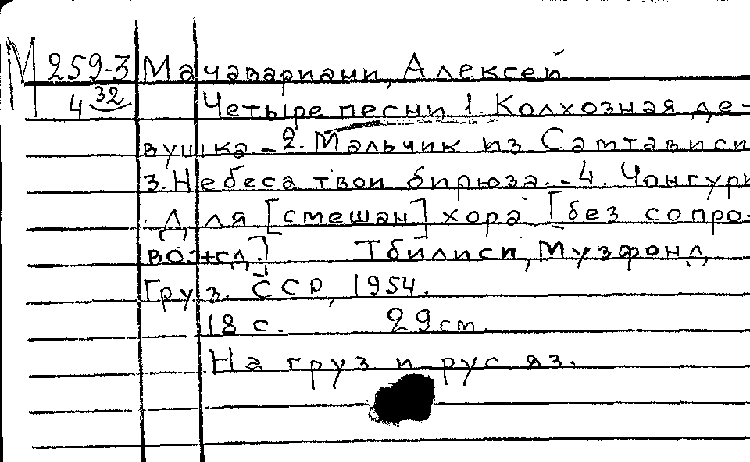 М 259-3 Мачавариани, Алексей
4 32 Четыре песни 1. Колхозная де-
вушка - 2. Мальчик из Самтависи
3. Небеса твои бирюза. - 4. Чонгури
. Для [смешан] хора [без сопро-
вожд.] Тбилиси, Музфонд
Груз. ССР, 1954.
18 с. 29 cm.
На груз и рус яз.